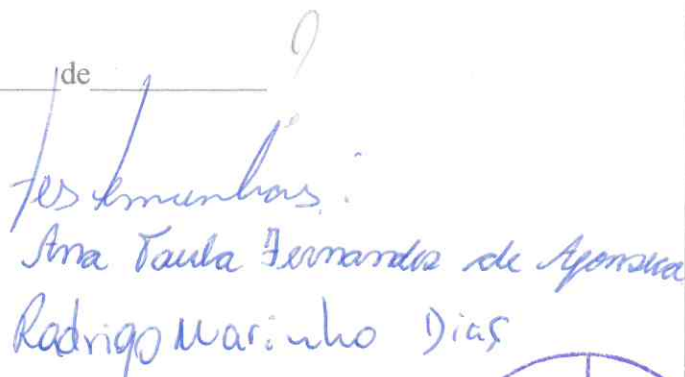 de
?
Testemunhas:
Ana Paula Fernandes de Afonseca
Rodrigo Marinho Dias